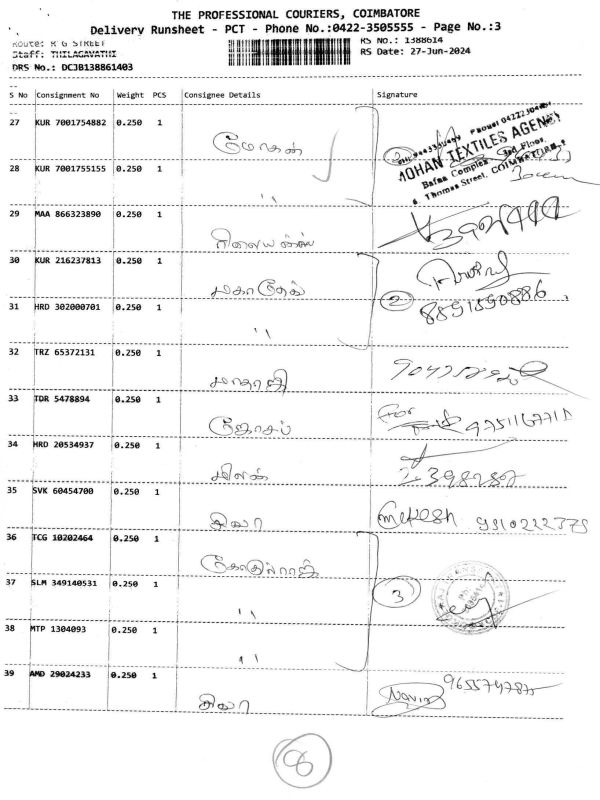 THE PROFESSIONAL COURIERS, COIMBATORE
Delivery Runsheet - PCT - Phone No.:0422-3505555 - Page No.:3
Route: R G STREET RS No.: 1388614
Staff: THILAGAVATHI RS Date: 27-Jun-2024
DRS No.: DCJB138861403
S No Consignment No Weight PCS Consignee Details Signature
27 KUR 7001754882 0.250 1 மோகன்
MOHAN TEXTILES AGENCY
Bafna Complex 3rd Floor,
Thomas Street, COIMBATORE
28 KUR 7001755155 0.250 1 ''
29 MAA 866323890 0.250 1 ரிலையன்ஸ்
30 KUR 216237813 0.250 1 மகாதேவ்
2 8891890886
31 HRD 302000701 0.250 1 ''
32 TRZ 65372131 0.250 1 மாதாஜி
33 TDR 5478894 0.250 1 ஜோசப்
For
34 HRD 20534937 0.250 1 மிலன்
35 SVK 60454700 0.250 1 Mukesh 9510222375
36 TCG 10202464 0.250 1 கோகுல்ராஜ்
37 SLM 349140531 0.250 1 '' 3
38 MTP 1304093 0.250 1 ''
39 AMD 29024233 0.250 1 Navin
8